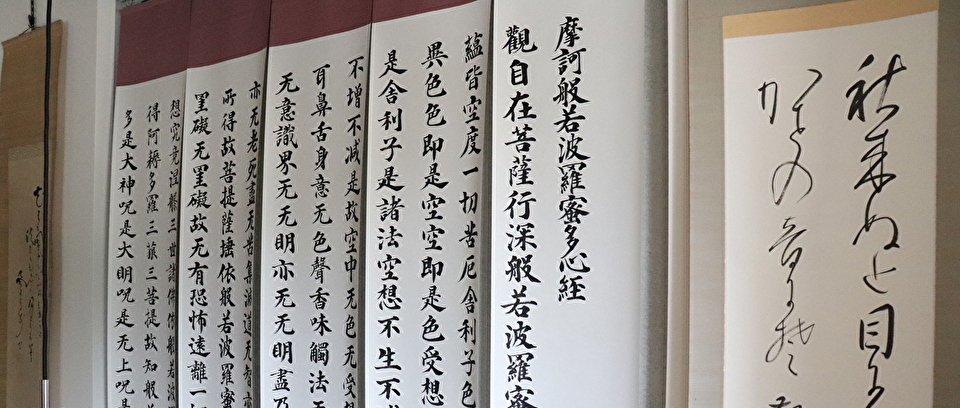 秋来ぬと目
かせの音に
摩訶般若波羅蜜多心経
觀自在菩薩行深般若波羅蜜
蘊皆空度一切苦厄舎利子色
異色色即是空空即是色受想
是舎利子是諸法空想不生不
不增不减是故空中无色无受想
耳鼻舌身意无色聲香味觸法无
无意識界无无明亦无无明盡乃
亦无老死盡无苦集滅道无智亦
所得故菩提薩埵依般若波羅蜜
罣礙无罣礙故无有恐怖遠離一
想究竟涅槃三世諸佛依般若波
得阿耨多羅三藐三菩提故知般
多是大神呪是大明呪是无上呪是